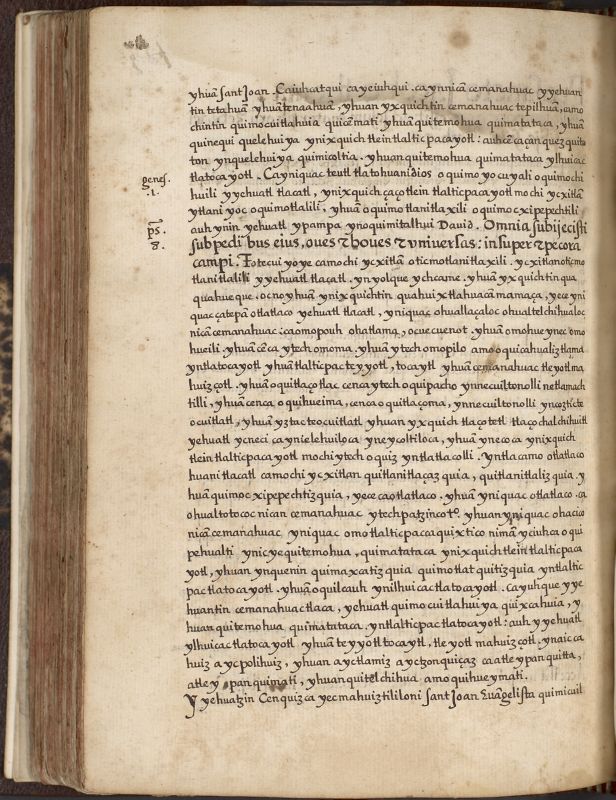 yhuā sant Joan. Ca iuhcatqui ca yeiuhqui. ca ynnicā cemanahuac yyehuan
tin tetahuā yhuā tenaahuā, yhuan yxquichtin cemanahuac tepilhuā, camo
chintin quimocuitlahuia quicēmati yhuā quitemohua quimatataca, yhuā
quinequi quelehuiya ynixquich tlein tlalticpacayotl: auh cēca çan quēzquito
ton ynquelehuiya quimicoltia. yhuan quitemohua quimatataca ylhuicac
tlatocayotl. Ca yniquac teutl tlatohuani dios oquimoyocuyali oquimochi
genes. huili yyehuatl tlacatl, ynixquich çaçotlein tlalticpacayotl mochi ycxitlā
.1. ytlani yoc oquimotlalili, yhuā oquimotlanitlaxili oquimocxipepechtili
ps. auh ynin yehuatl ypampa ynoquimitalhui David. Omnia subijecisti
8. sub pedibus eius, oues & boues & vniuersas: insuper & pecora
campi. Totecuiyoye ca mochi ycxitlā oticmotlanitlaxili. ycxitlan oticmo
tlanitlalili yyehuatl tlacatl. yn yolque ychcame. yhuā yxquichtin qua
quahueque. oc no yhuā ynixquichtin quahuixtlahuacā mamaça, yece yni
quac çatepā otlatlaco yehuatl tlacatl, yniquac ohuallaçaloc ohualtelchihualoc
nicā cemanahuac: ca omopouh ohatlamā, ocuecuenot. yhuā omohueyne omo
hueili. yhuā cēca ytech omoma. yhuā ytech omopilo amo oquicahualiztlama
yntlatocayotl yhuā tlalticpac teyyotl, tocaytl yhuā cemanahuac tleyotl ma
huizçotl. yhuā oquitlaçotlac cenca ytech oquipacho ynnecuiltonolli netlamach
tilli, yhuā cenca oquihueima, cenca oquitlaçoma, ynnecuiltonolli yncozticte
ocuitlatl, yhuā yztac teocuitlatl yhuan yxquich tlaçotetl tlaçochalchihuitl
yehuatl ycneci ca ynielehuiloca yneycoltiloca, yhuā yneco ca ynixquich
tlein tlalticpacayotl mochi ytech oquiz yntlatlacolli. yntlacamo otlatlaco
huani tlacatl ca mochi ycxitlan quitlanitlaçazquia, quitlanitlalizquia. y
huā quimocxipepechtizquia, yece ca otlatlaco. yhuā yniquac otlatlaco. ca
ohualtotococ nican cemanahuac ytechpatzinco to. yhuan yniquac ohacico
nicā cemanahuac, yniquac omotlalticpacaquixtico nimā yciuhca oqui
pehualti ynic ye quitemohua, quimatataca ynixquich tlein tlalticpaca
yotl, yhuan ynquenin quimaxcatizquia quimotlatquitizquia yntlaltic
pac tlatocayotl. yhuā oquilcauh ynilhuicac tlatocayotl. ca yuhque yye
huantin cemanahuac tlaca, yehuatl quimocuitlahuiya quixcahuia, y
huan quitemohua quimatataca. yntlalticpac tlatocayotl: auh yyehuatl
ylhuicac tlatocayotl yhuā teyyotl tocaytl. tleyotl mahuizçotl. ynaic ca
huiz aycpolihuiz, yhuan ayctlamiz ayctzonquiçaz ca atle ypan quitta,
atle ypan quimati, yhuan quitelchihua amo quihueymati.
Yyehuatzin Cenquizca yecmahuiztililoni sant Joan Euāgelista quimicuil